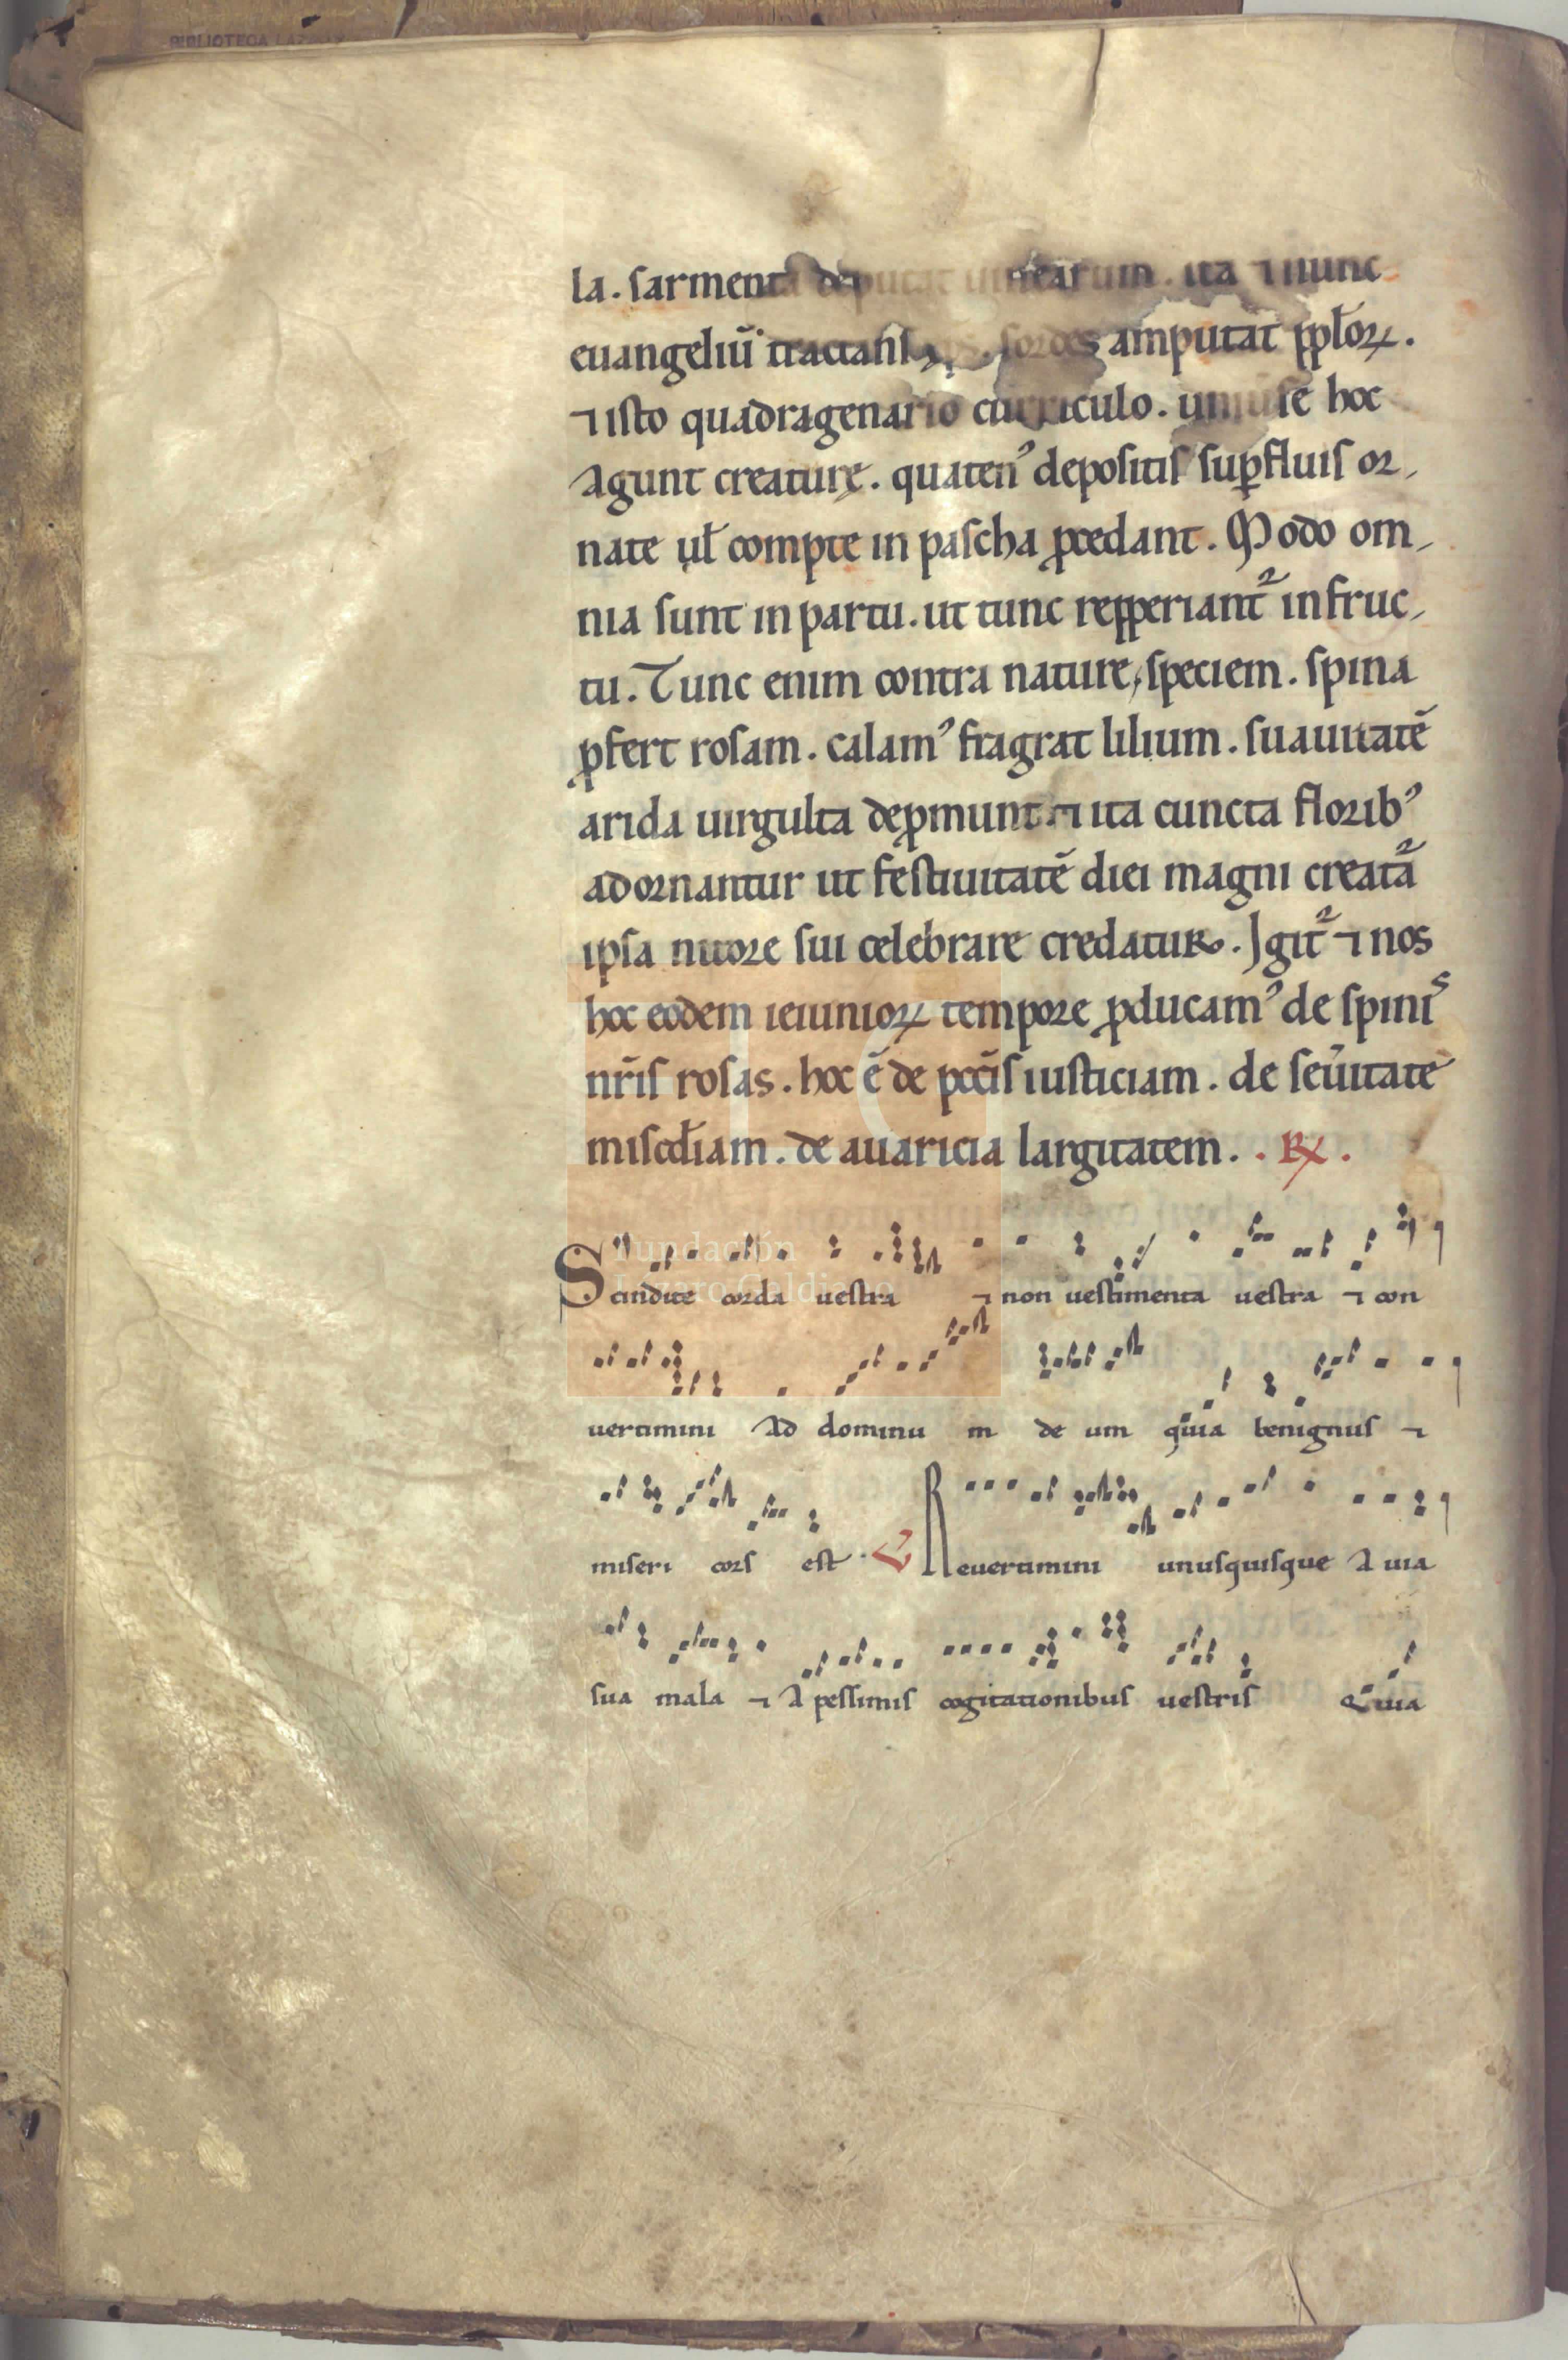 BIBLIOTECA LAZARO
la. sarmenta deputat uinearum. ita ⁊ nunc
euangeliū tractans sordes amputat ppl̄oꝝ.
⁊ isto quadragenario curriculo. uniuse hoc
Agunt creaturę. quatenꝰ depositis suꝑfluis or,
nate ul̄ compte in pascha ꝓcedant. Modo om,
nia sunt in partu. ut tunc repperiant᷑ in fruc,
tu. Tunc enim contra naturę speciem. spina
ꝓfert rosam. calamꝰ fragrat lilium. suauitatē
arida uirgulta deꝓmunt. ⁊ ita cuncta floribꝰ
adornantur ut festiuitatē diei magni creat᷑a
ipsa nitore sui celebrare credatur. Igit᷑ ⁊ nos
hoc eodem ieiunioꝝ tempore ꝓducamꝰ de spinis
nr̄is rosas. hoc ē de pccīs iusticiam. de seu̓itate
miscd̄iam. de auaricia largitatem. . R̸ .
Fundación
Lázaro Galdiano
Scindite corda uestra ⁊ non uestimenta uestra ⁊ con
uertimini Ad dominu m de um quia benignus ⁊
miseri cors est. V̸ Reuertimini unusquisque A uia
sua mala ⁊ A pessimis cogitationibus uestris Quia